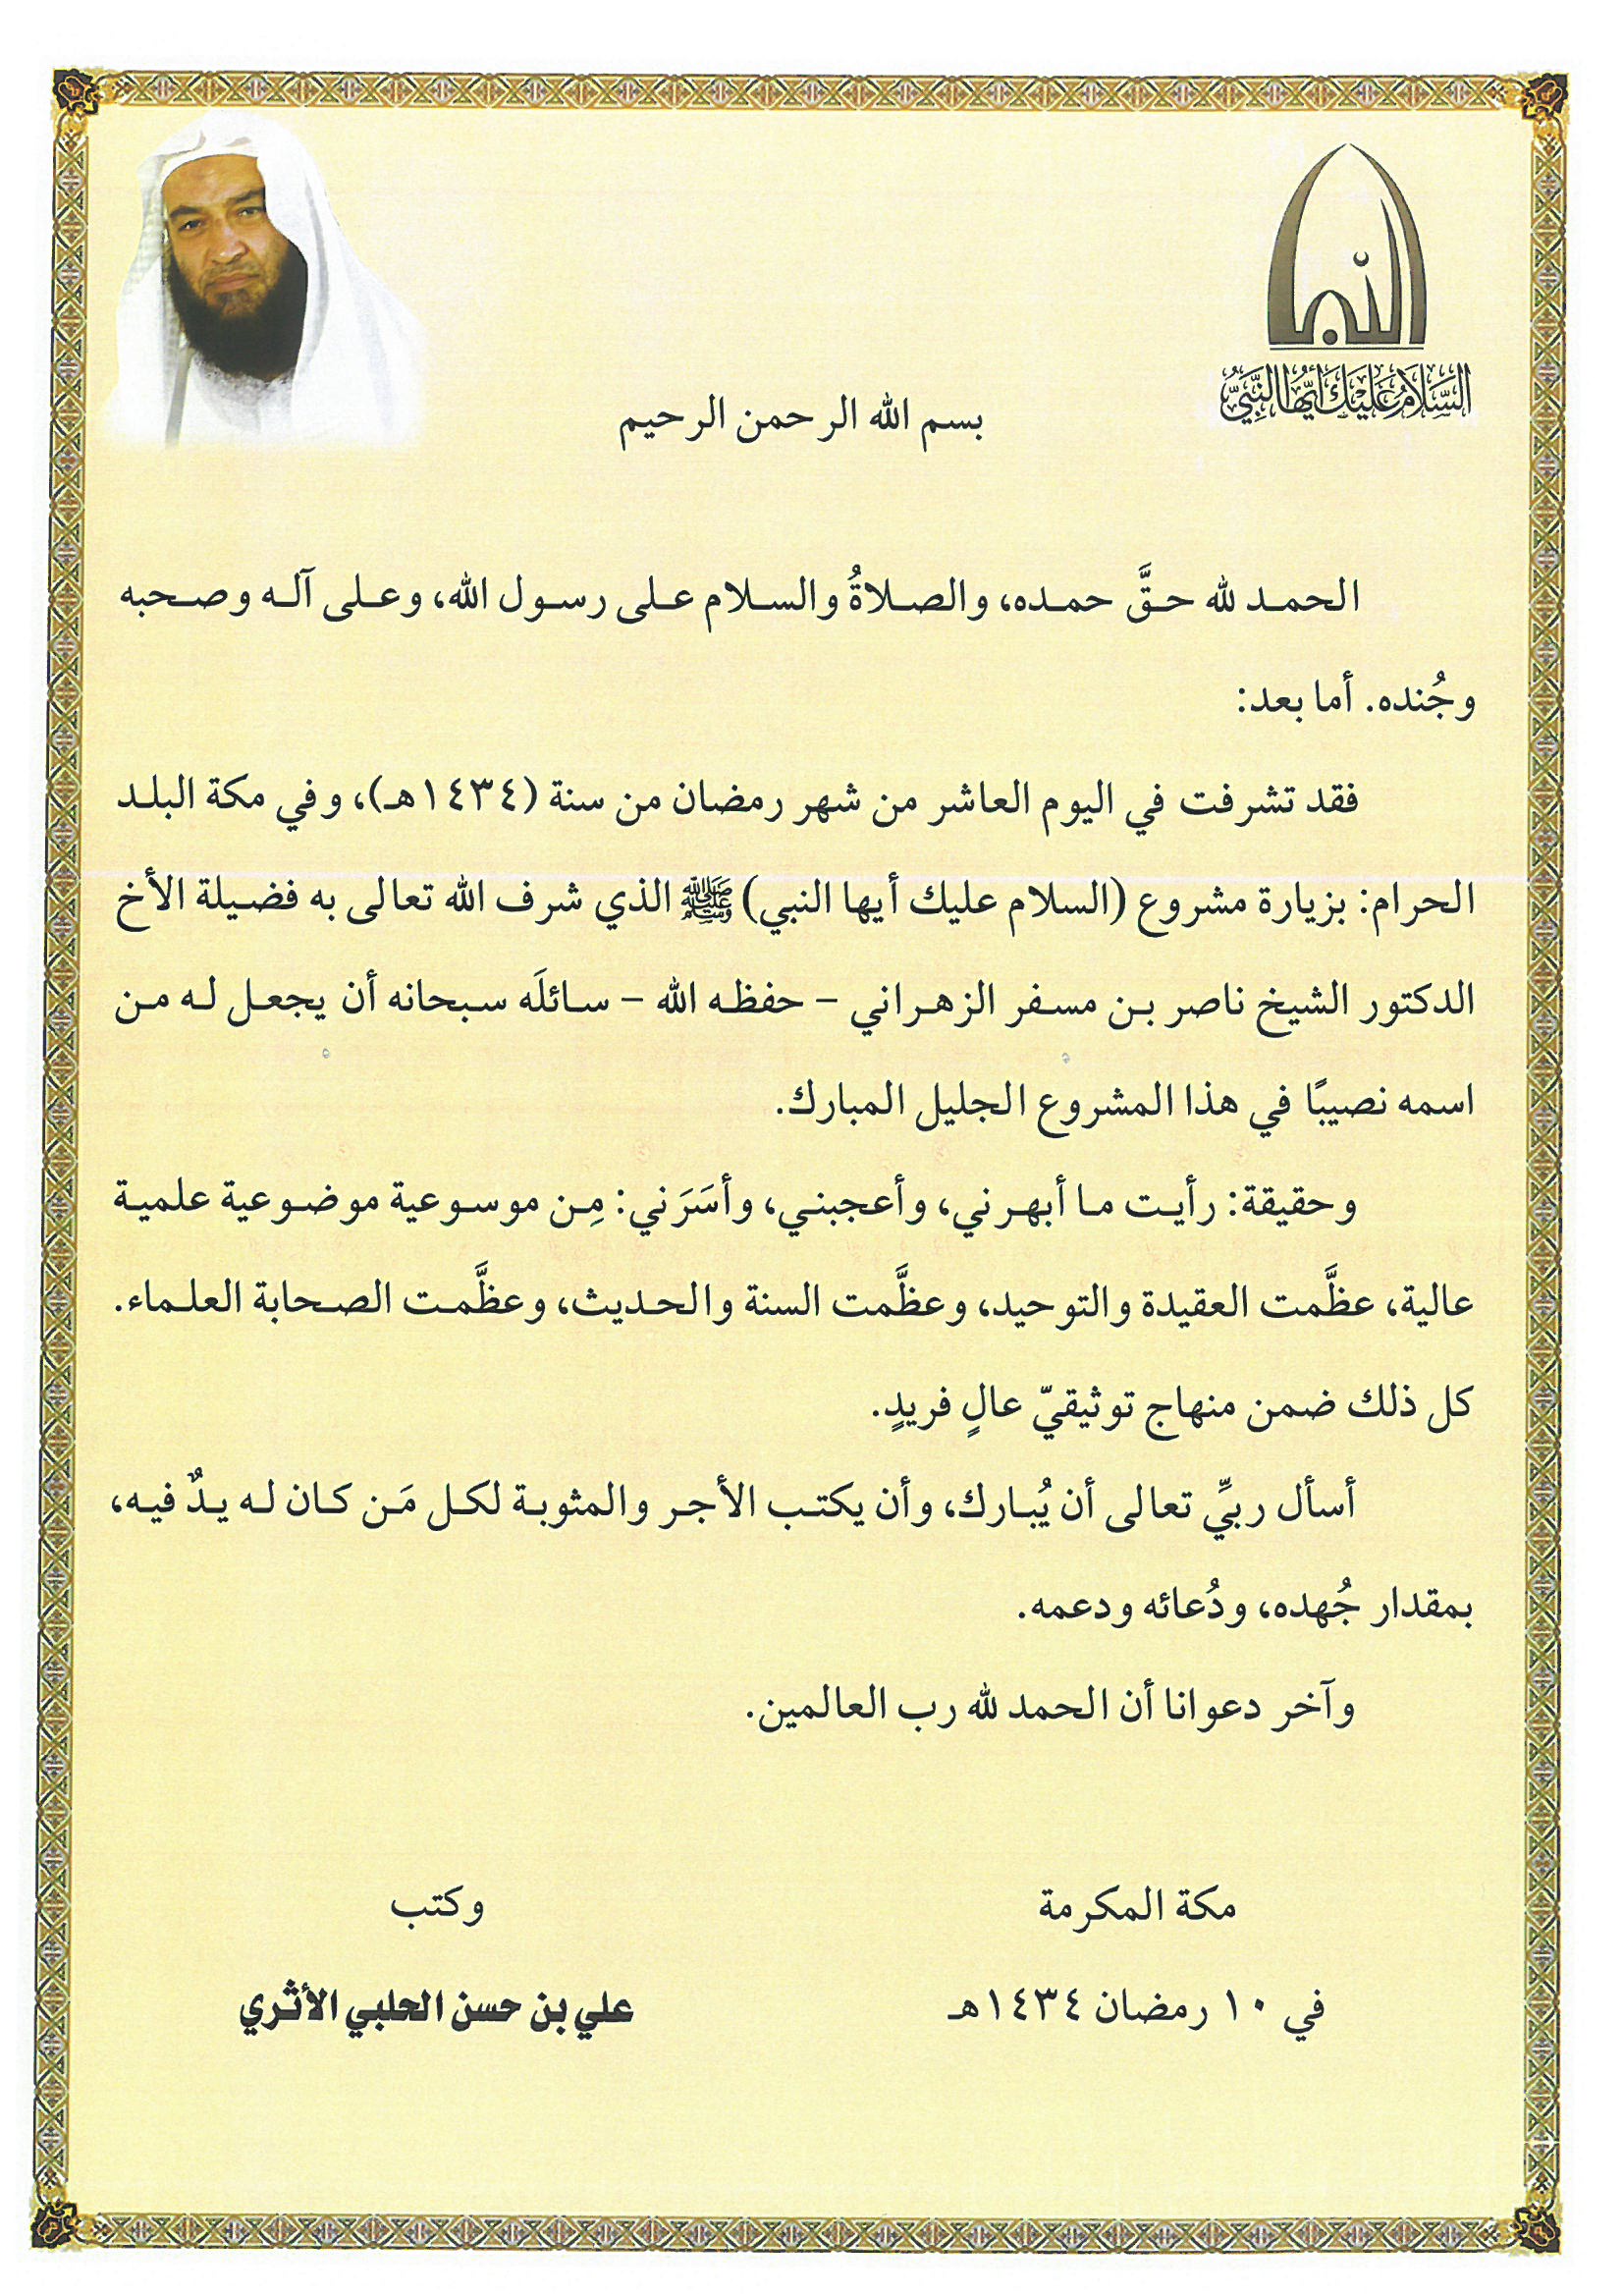 النبي
السلام عليك أيها النبي
بسم الله الرحمن الرحيم
الحمد لله حقَّ حمده، والصلاةُ والسلام على رسول الله، وعلى آله وصحبه
وجُنده. أما بعد:
فقد تشرفت في اليوم العاشر من شهر رمضان من سنة (١٤٣٤هـ)، وفي مكة البلد
الحرام: بزيارة مشروع (السلام عليك أيها النبي) ﷺ الذي شرف الله تعالى به فضيلة الأخ
الدكتور الشيخ ناصر بن مسفر الزهراني – حفظه الله – سائلَه سبحانه أن يجعل له من
اسمه نصيبًا في هذا المشروع الجليل المبارك.
وحقيقة: رأيت ما أبهرني، وأعجبني، وأسَرَني: مِن موسوعية موضوعية علمية
عالية، عظَّمت العقيدة والتوحيد، وعظَّمت السنة والحديث، وعظَّمت الصحابة العلماء.
كل ذلك ضمن منهاج توثيقيّ عالٍ فريدٍ.
أسأل ربيِّ تعالى أن يُبارك، وأن يكتب الأجر والمثوبة لكل مَن كان له يدٌ فيه،
بمقدار جُهده، ودُعائه ودعمه.
وآخر دعوانا أن الحمد لله رب العالمين.
مكة المكرمة
في ١٠ رمضان ١٤٣٤هـ
وكتب
علي بن حسن الحلبي الأثري